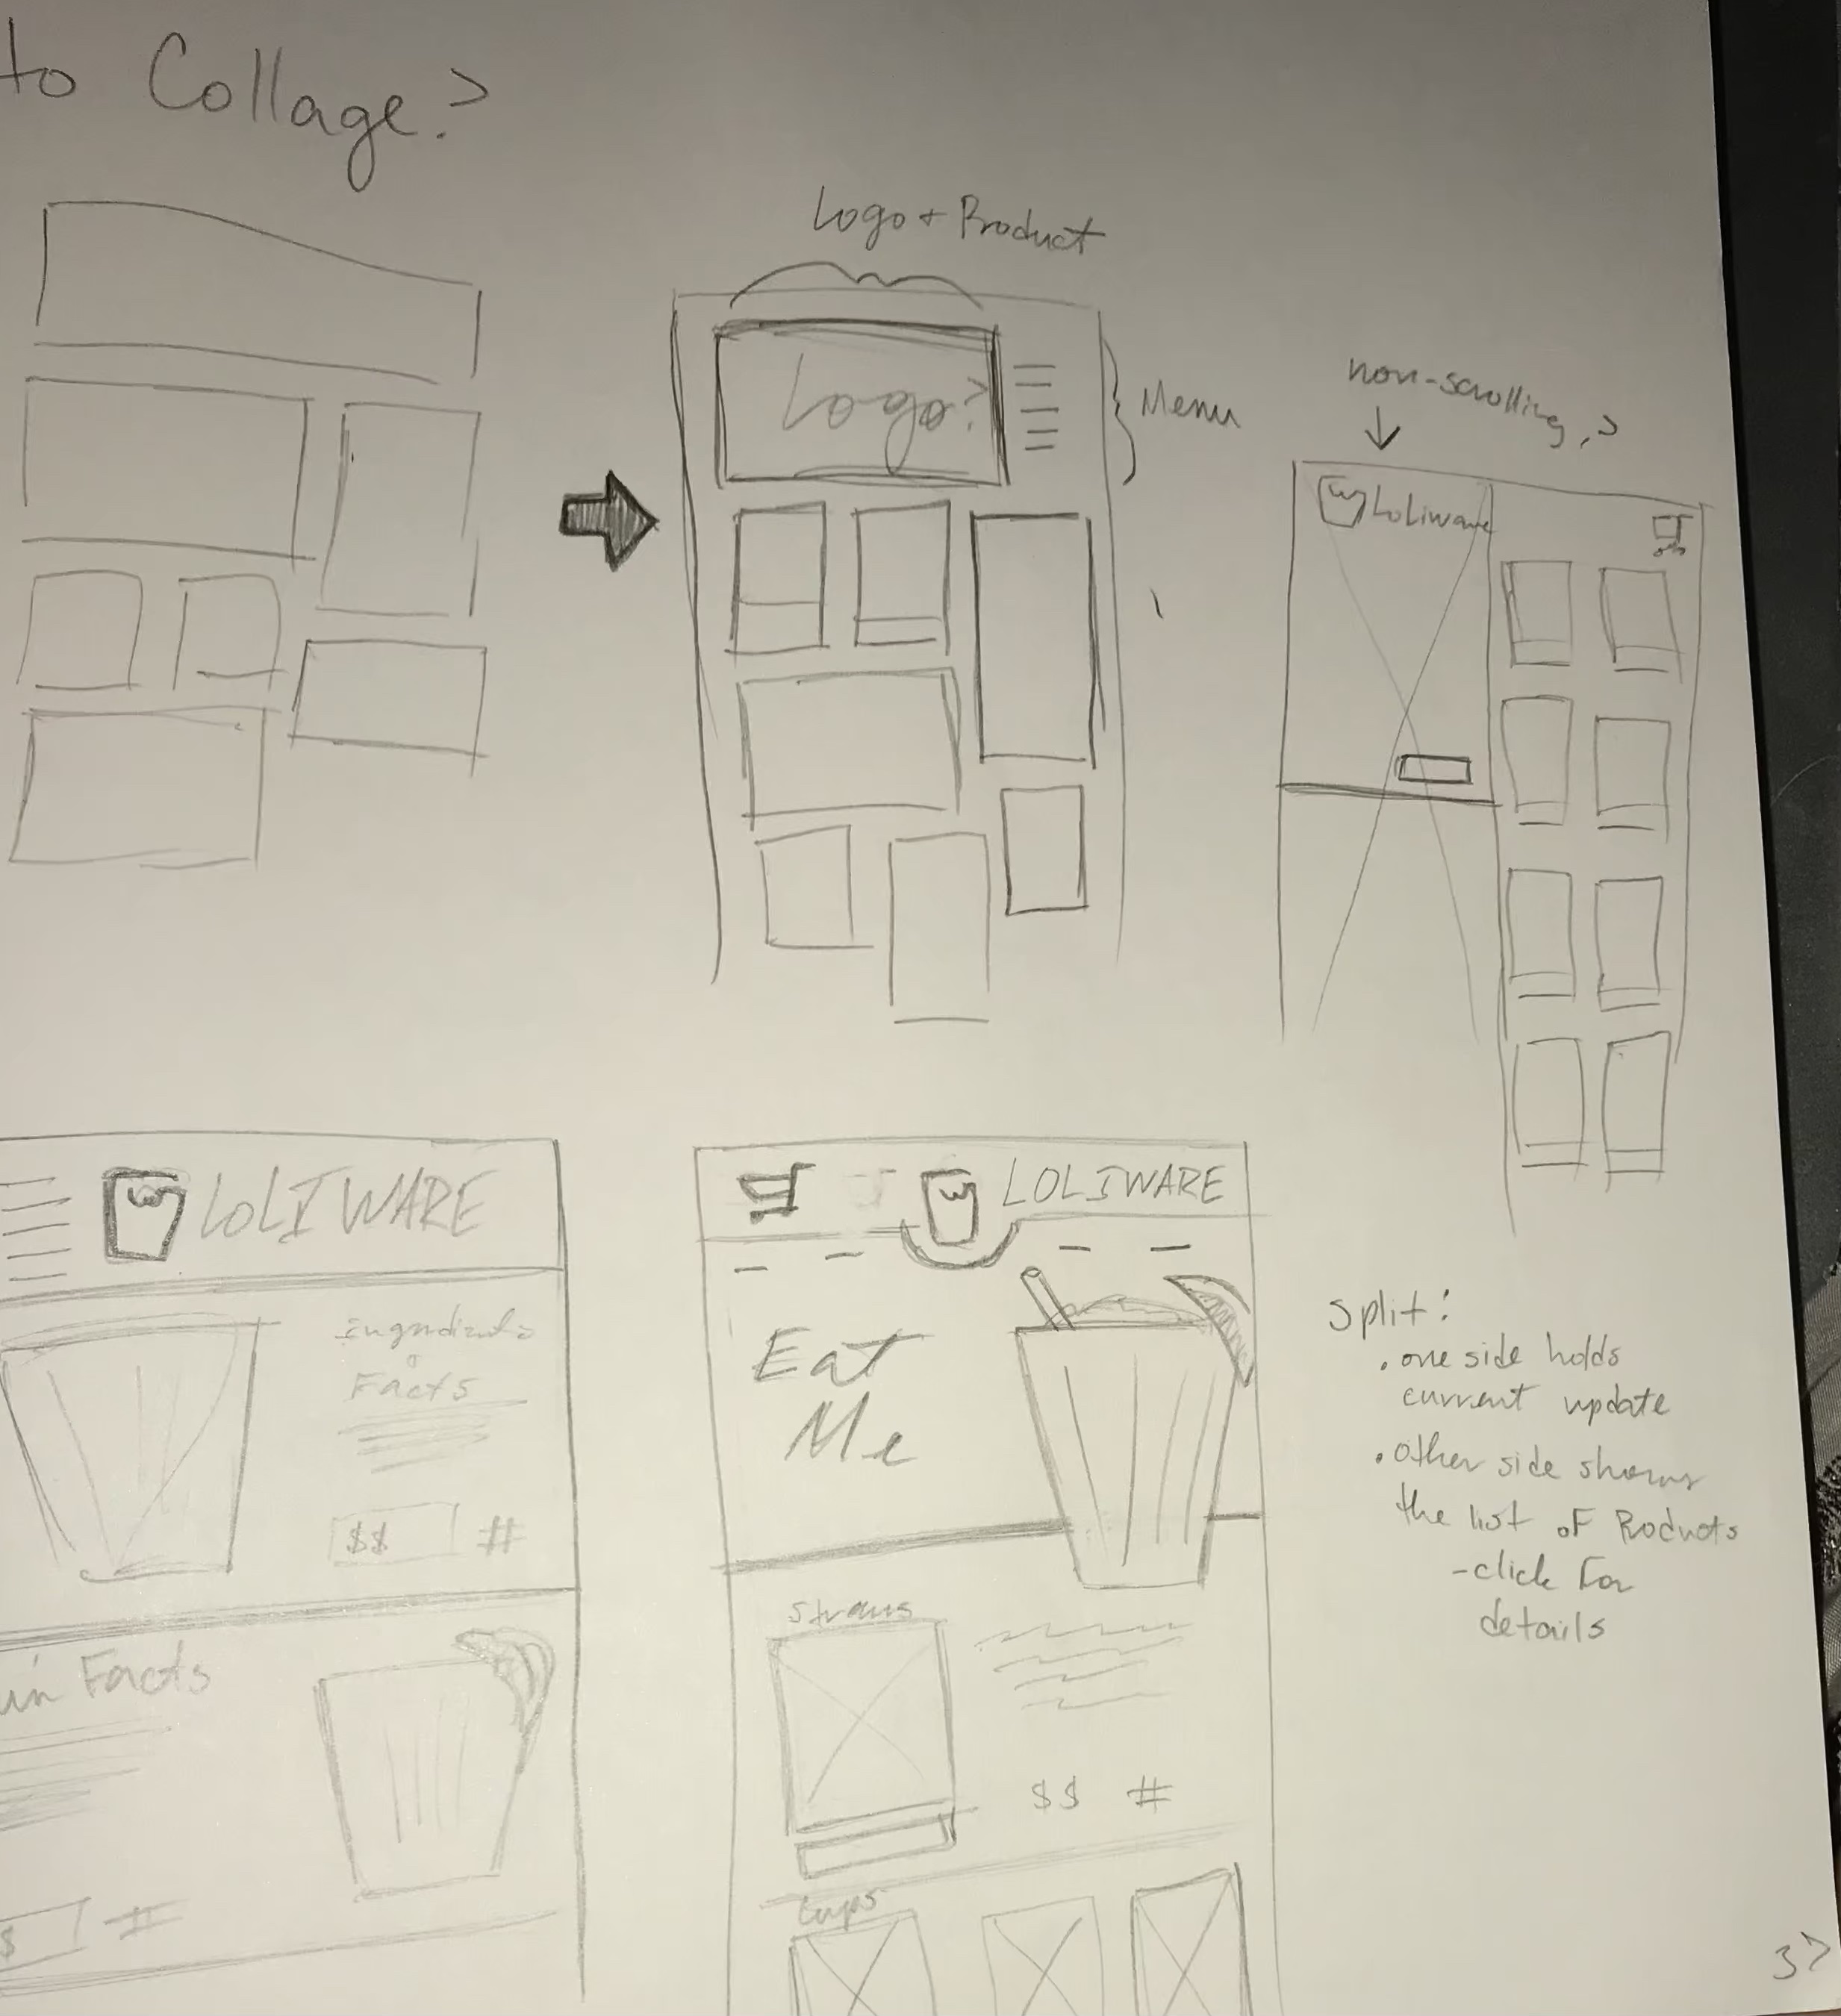 to Collage?
Logo + Product
Logo?
Menu
non-scrolling?
LoLiware
LOLIWARE
Ingredients
Facts
$$ #
Facts
$ #
LOLIWARE
Eat
Me
Straws
$$ #
Cups
Split:
• one side holds
current update
• other side shows
the list of Products
- click for
details